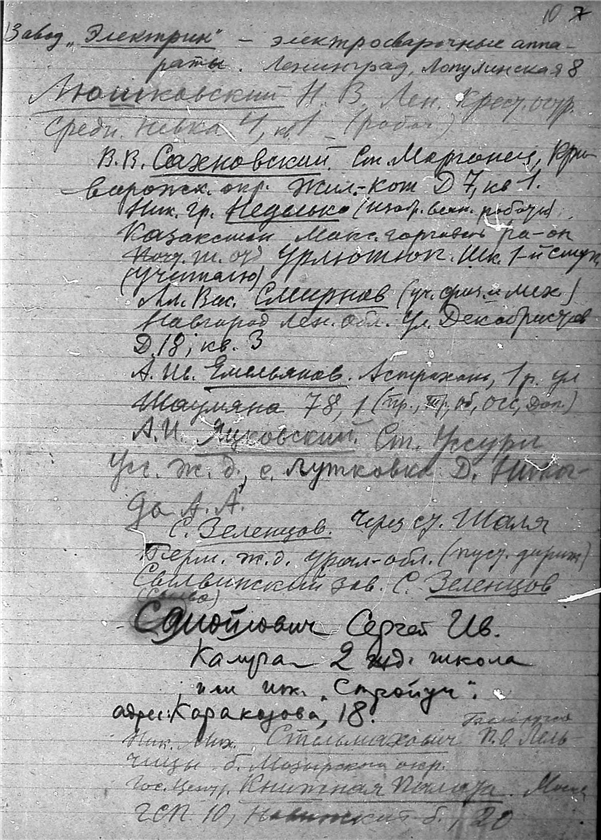 10 7
Завод „Электрик" – электросварочные аппа-
раты. Ленинград, Лопулинская 8
Люшковский Н. В. Лен. Крест. остр.
Средн. Невка 4, кв 1 (робоч.)
В.В. Сахновский Ст. Марганец, Кри-
ворожск. окр. Жил-кот Д 7, кв 1.
Ник. гр. Неделько
Казакстан Макс. ра-он
Урлютюп. шк. 1-й ступ.
(учителю)
Ал. Вас. Смирнов (уч. физ. и мех.)
Новгород Лен. обл. ул. Декабристов
Д. 18, кв. 3
А. Ш. Емельянов. Астрахань, 1 р. ул
Шаумяна 78, 1
А. И. Янковский Ст. Уссури
Усс. ж. д., с. Лутковка Д.
да А. А.
С. Зеленцов. через ст. Шаля
Перм. ж. д. Урал-обл.
Сылвинский зав. С. Зеленцов
(Сылва)
Самойлович Сергей Ив.
Калуга 2 жд. школа
или инж. „Стройуч".
адрес: Каракозова, 18.
Ник. Мих. Стельмахович П.О. Лель-
чицы б. Мозырского окр.
Гос. Центр. Книжная Палата. Москва
ГСП 10, Новинский б., 20